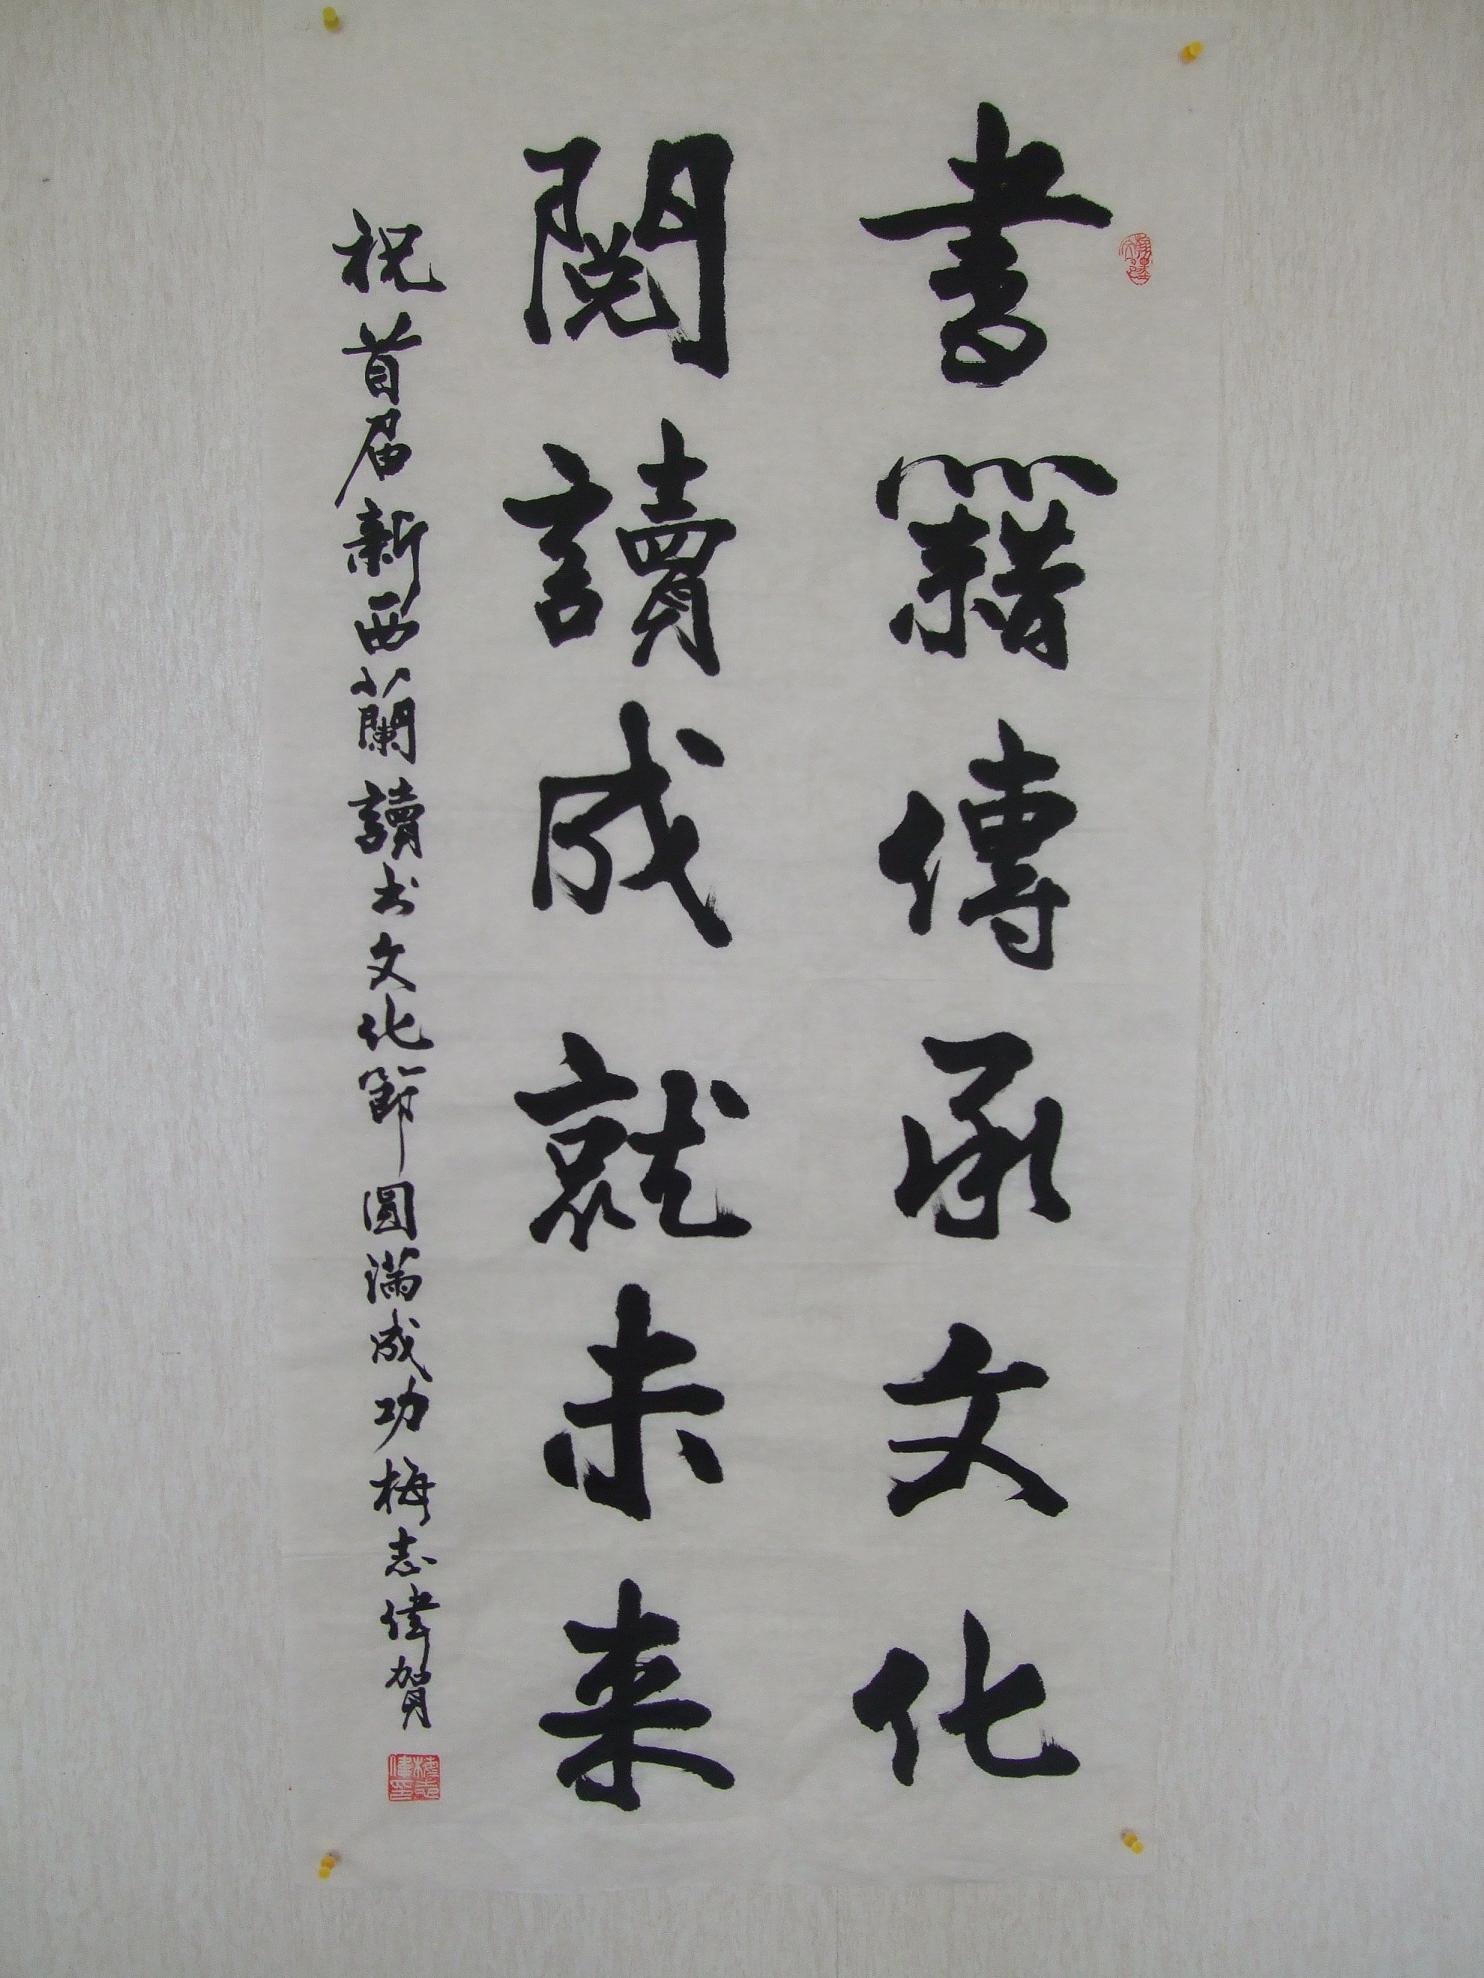 書籍傳承文化
閱讀成就未来
祝首届新西蘭讀书文化節圓滿成功梅志偉賀
梅志偉印